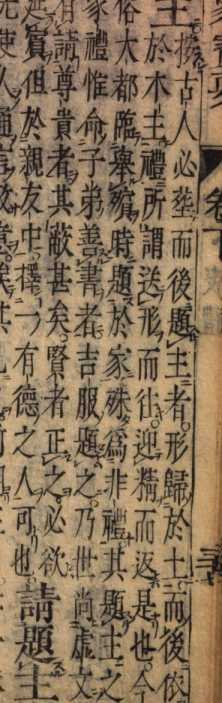 主按古人必塟而後題主者形歸於土而後依
於木主禮所謂送形而往迎精而返是也今
俗大都臨舉殯時題於家殊爲非禮其題主之
家禮惟命子弟善書者吉服題之乃世尚虚文
請尊貴者其蔽甚矣賢者正之必欲
賓但於親友中擇一有德之人可也
請題主